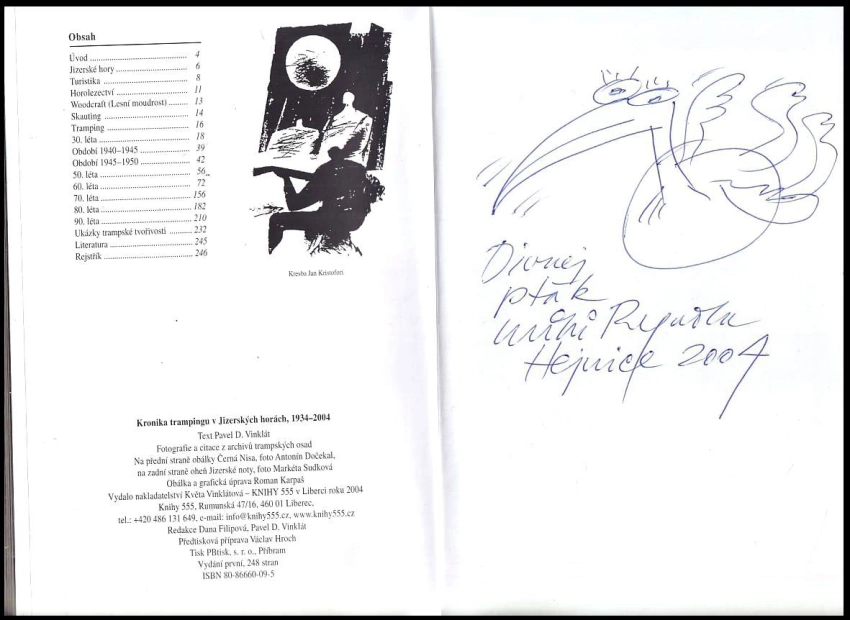 Obsah
Úvod 4
Jizerské hory 6
Turistika 8
Horolezectví 11
Woodcraft (Lesní moudrost) 13
Skauting 14
Tramping 16
30. léta 18
Období 1940–1945 39
Období 1945–1950 42
50. léta 56
60. léta 72
70. léta 156
80. léta 182
90. léta 210
Ukázky trampské tvořivosti 232
Literatura 245
Rejstřík 246
Kresba Jan Kristofori
Kronika trampingu v Jizerských horách, 1934–2004
Text Pavel D. Vinklát
Fotografie a citace z archivů trampských osad
Na přední straně obálky Černá Nisa, foto Antonín Dočekal,
na zadní straně oheň Jizerské noty, foto Markéta Sudková
Obálka a grafická úprava Roman Karpaš
Vydalo nakladatelství Květa Vinklátová – KNIHY 555 v Liberci roku 2004
Knihy 555, Rumunská 47/16, 460 01 Liberec,
tel.: +420 486 131 649, e-mail: info@knihy555.cz, www.knihy555.cz
Redakce Dana Filipová, Pavel D. Vinklát
Předtisková příprava Václav Hroch
Tisk PBtisk, s. r. o., Příbram
Vydání první, 248 stran
ISBN 80-86660-09-5
Divnej
pták
Hejnice 2004